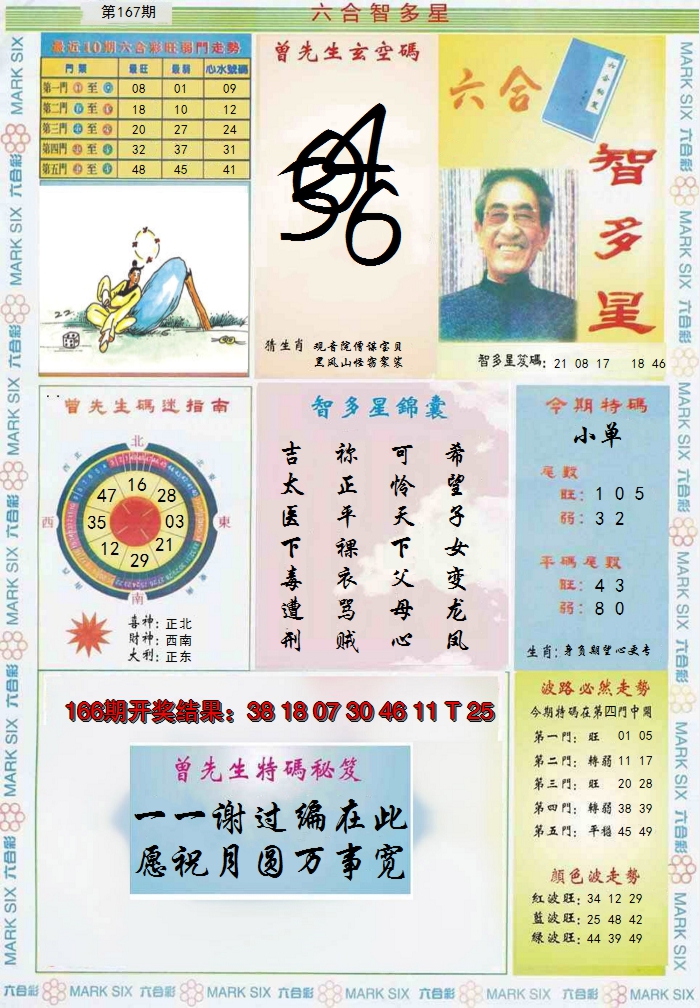 第167期
六合智多星
最近10期六合彩旺弱門走勢
門類 最旺 最弱 心水號碼
第一門 至 08 01 09
第二門 至 18 10 12
第三門 至 20 27 24
第四門 至 32 37 31
第五門 至 48 45 41
曾先生玄空碼
猜生肖 观音院僧谋宝贝
黑风山怪窃袈裟
六合
智多星
智多星笈碼: 21 08 17 18 46
曾先生碼迷指南
北
西
東
南
47 16 28
35 03
12 29 21
喜神: 正北
財神: 西南
大利: 正东
智多星錦囊
希望子女变龙凤
可怜天下父母心
祢正平裸衣骂贼
吉太医下毒遭刑
今期特碼
小单
尾數
旺: 1 0 5
弱: 3 2
平碼尾數
旺: 4 3
弱: 8 0
生肖: 身负期望心更专
166期开奖结果: 38 18 07 30 46 11 T 25
曾先生特碼秘笈
一一谢过编在此
愿祝月圆万事宽
波路必然走勢
今期特碼在第四門中開
第一門: 旺 01 05
第二門: 轉弱 11 17
第三門: 旺 20 28
第四門: 轉弱 38 39
第五門: 平穩 45 49
顏色波走勢
紅波旺: 34 12 29
藍波旺: 25 48 42
綠波旺: 44 39 49
MARK SIX 六合彩 MARK SIX 六合彩 MARK SIX 六合彩 MARK SIX 六合彩 MARK SIX